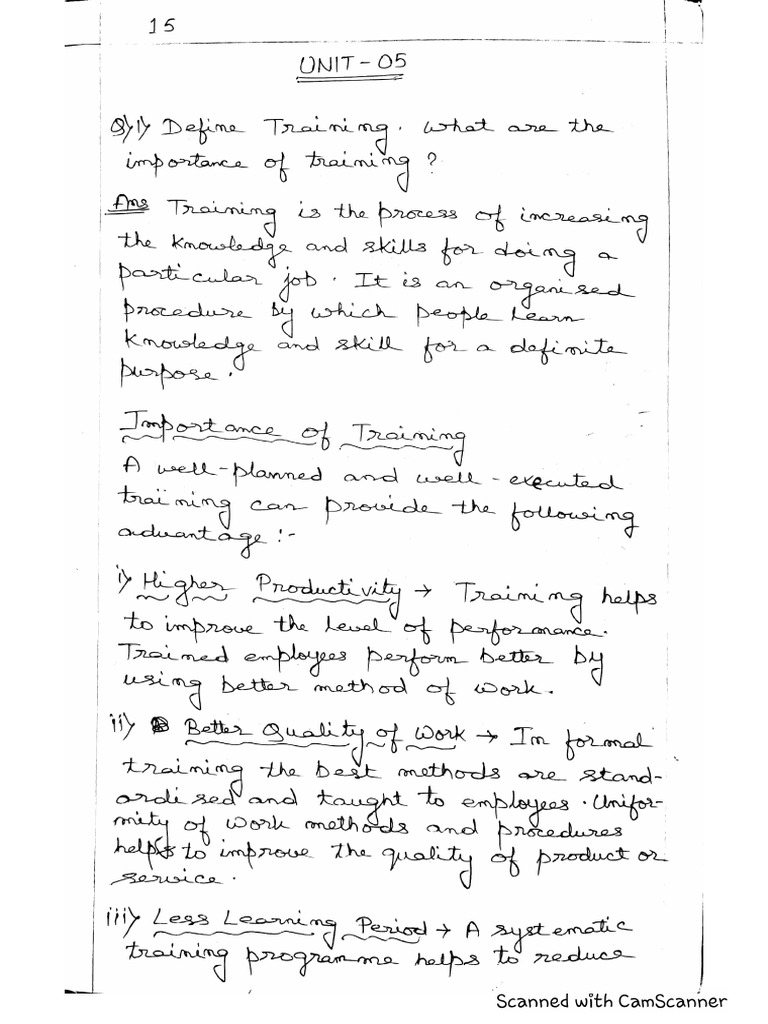 15
UNIT-05
Q)1) Define Training. What are the
importance of training?
Ans Training is the process of increasing
the knowledge and skills for doing a
particular job. It is an organised
procedure by which people learn
knowledge and skill for a definite
purpose.
Importance of Training
A well-planned and well-executed
training can provide the following
advantage:-
i) Higher Productivity → Training helps
to improve the level of performance.
Trained employees perform better by
using better method of work.
ii) Better Quality of Work → In formal
training the best methods are stand-
ardised and taught to employees. Unifor-
mity of work methods and procedures
helps to improve the quality of product or
service.
iii) Less Learning Period → A systematic
training programme helps to reduce
Scanned with CamScanner